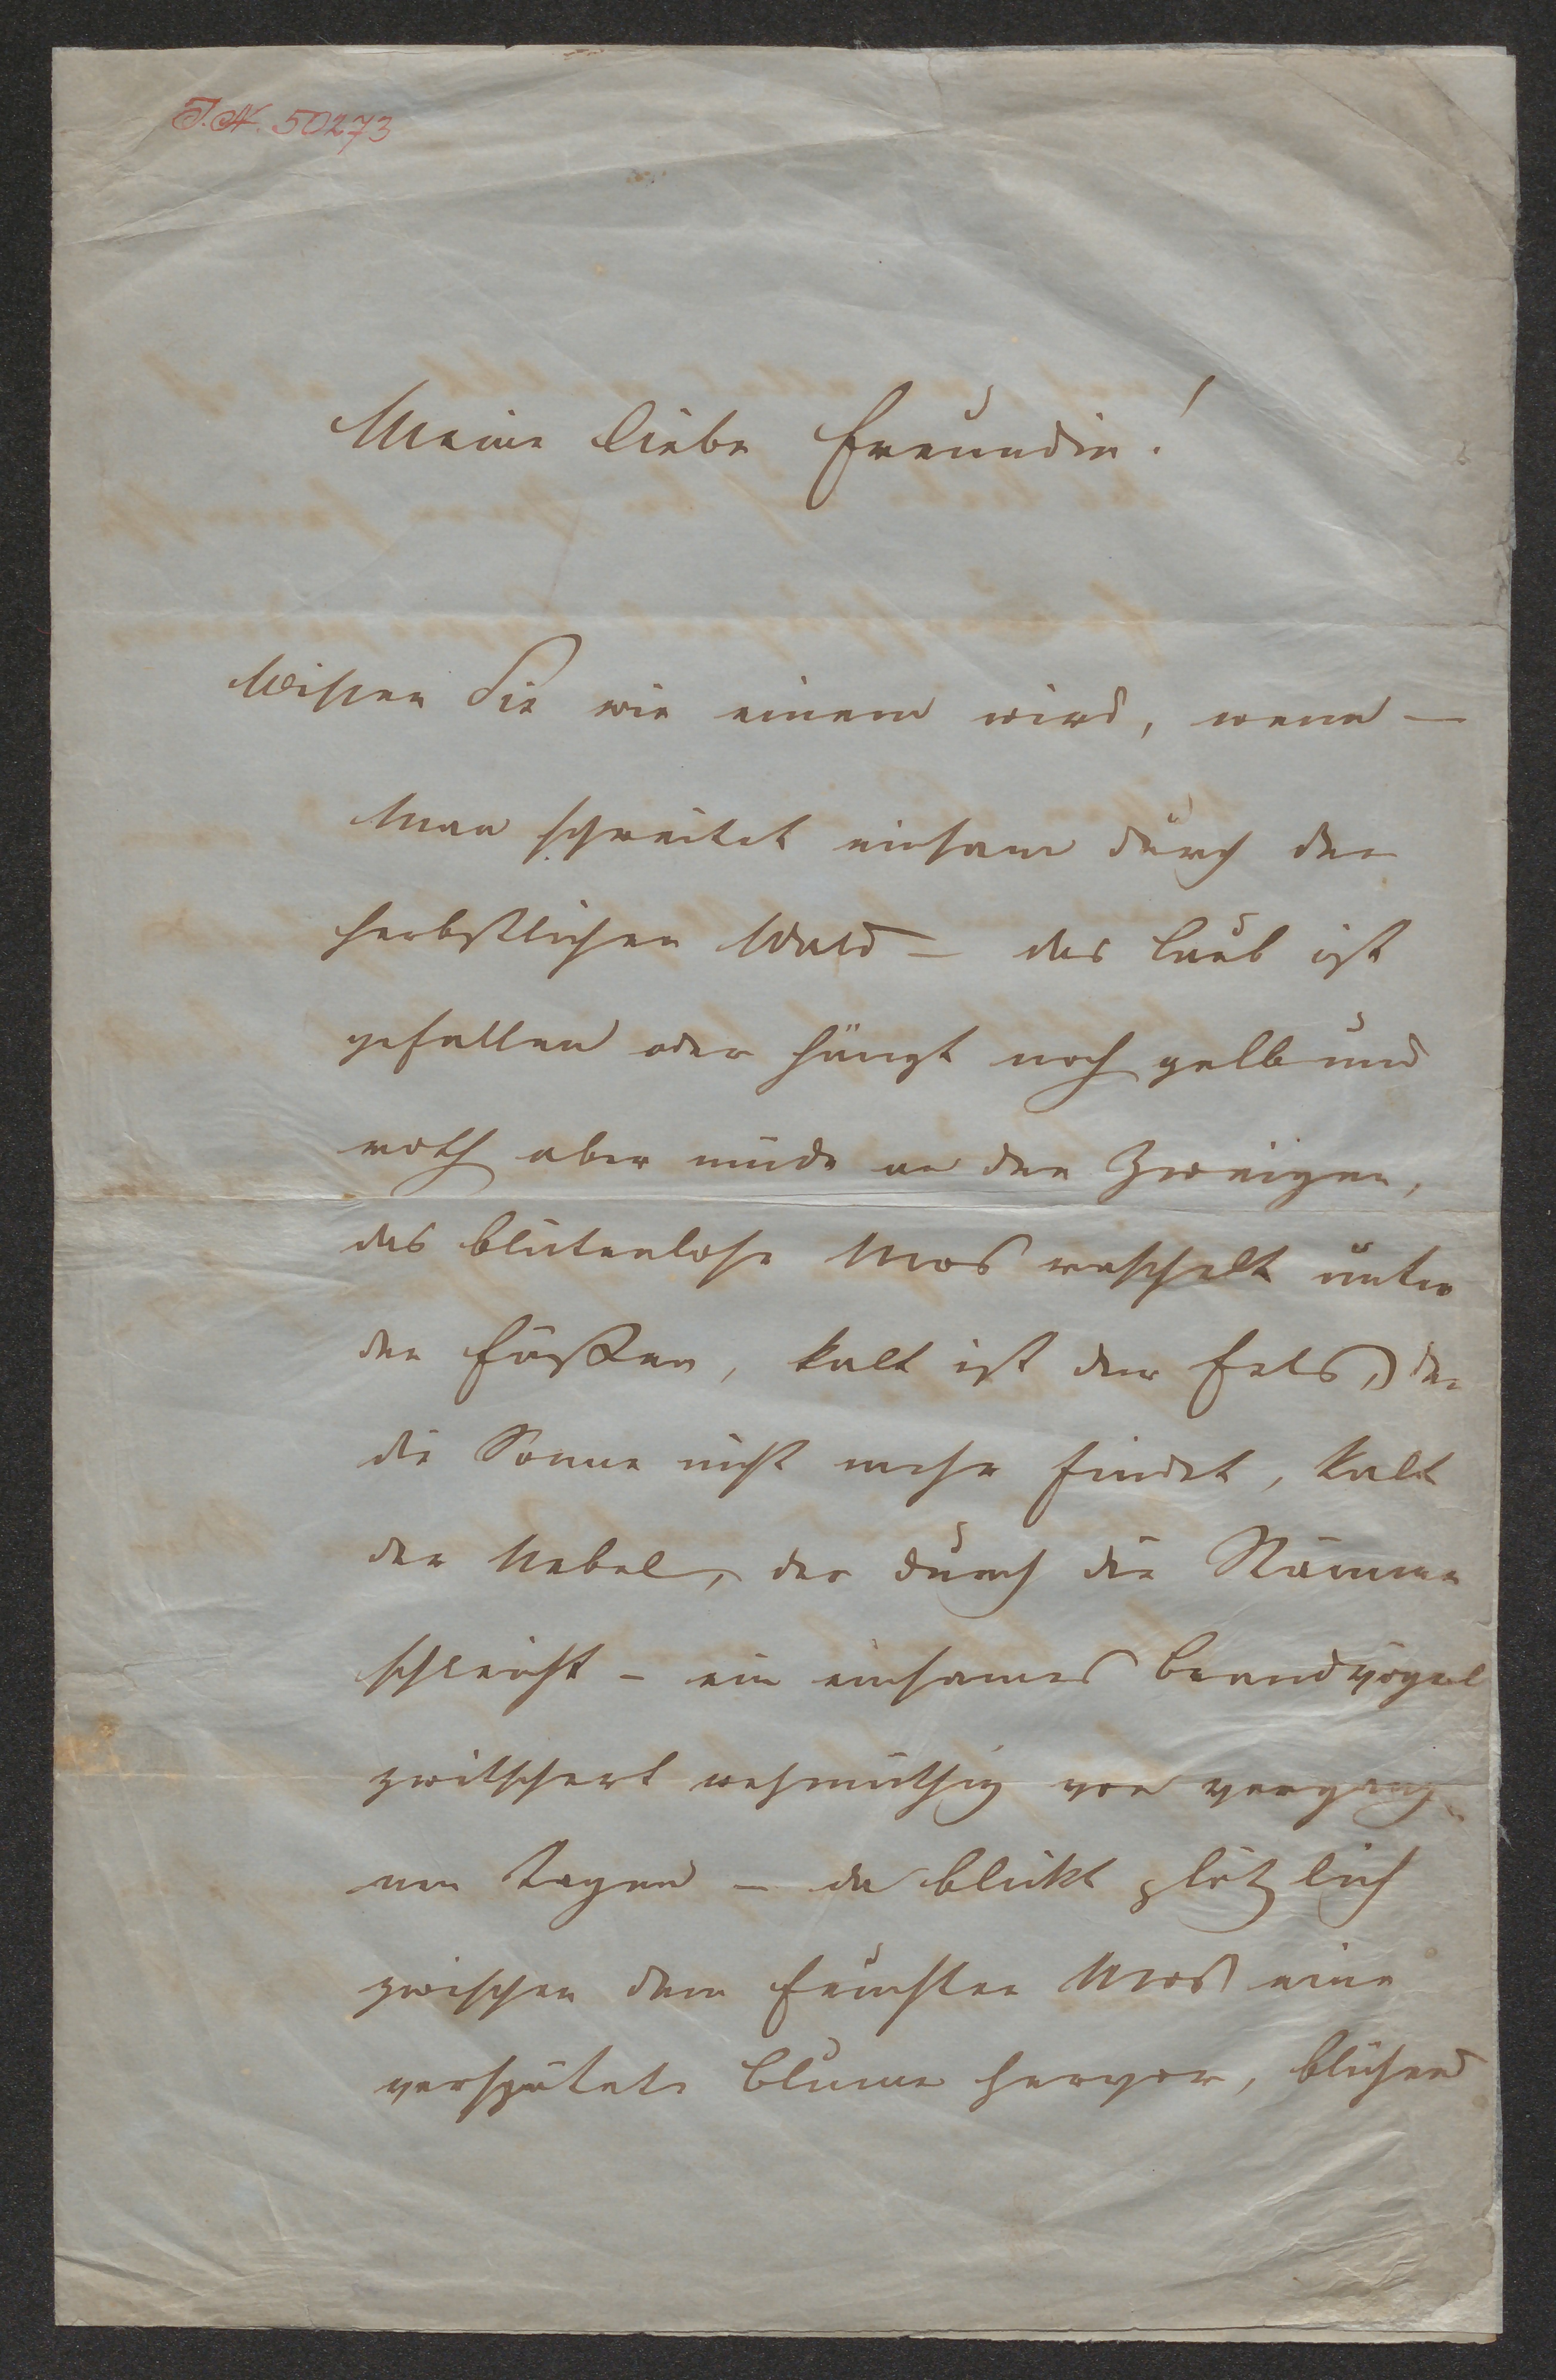 J.N. 50273
Meine liebe Freundin!
Wissen Sie wie einem wird, wenn –
Man schreitet einsam durch den
herbstlichen Wald – das Laub ist
gefallen oder hängt noch gelb und
roth aber müde an den Zweigen,
das blütenlose Moos raschelt unter
den Füßen, kalt ist der Fels, den
die Sonne nicht mehr findet, kalt
der Nebel, der durch die Stämme
schleicht – ein einsames
zwitschert wehmüthig von vergang
nen Tagen – da blickt plötzlich
zwischen dem feuchten Moos eine
verspätete Blume hervor, blühend